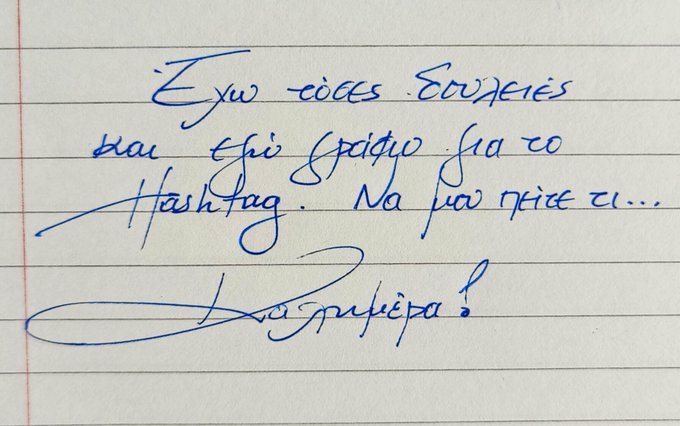 Έχω τόσες δουλειές
και εγώ γράφω για το
Hashtag. Να μου πείτε τι...
Καλημέρα!